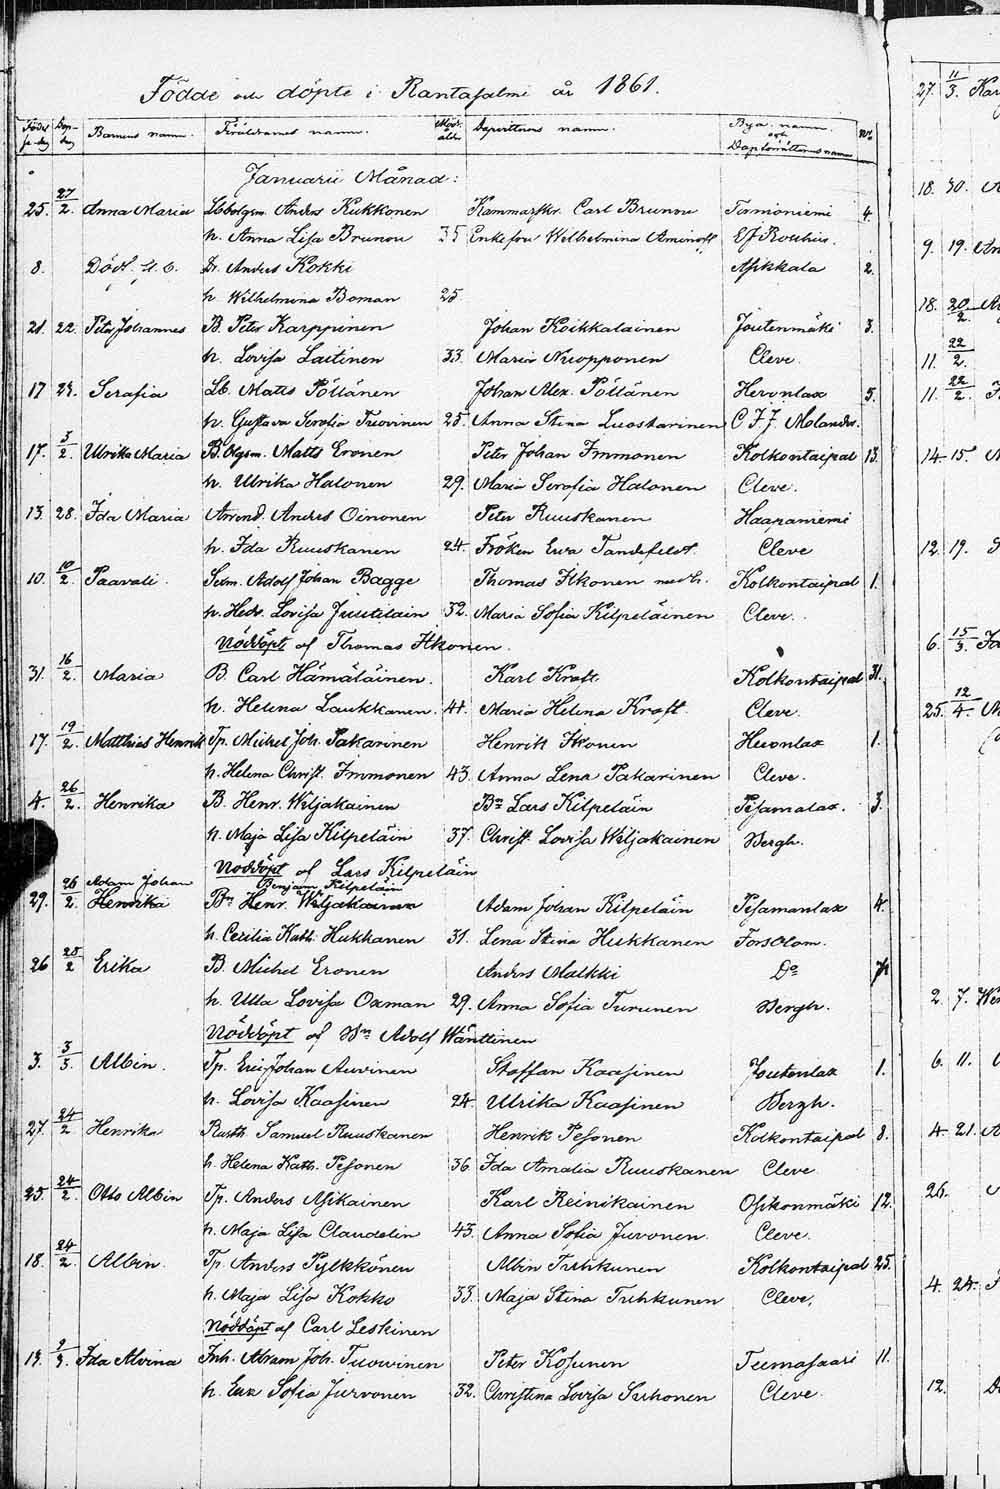 Födde och döpte i Rantasalmi år 1861.
Barnens namn. Föräldrarnes namn. Mod. ålder Dopvittnens namn. Bya namn och Dopförrättarens namn No
Januarii Månad:
25. 27/2. Anna Maria Anders Kukkonen Kammarskr. Carl Brunou Tamoniemi 4.
h. Anna Lisa Brunou 35 Enkefru Wilhelmina Aminoff
8. Anders Kokki Asikkala 2.
h Wilhelmina Boman 25
21. 22. Peter Johannes B. Peter Karppinen Johan Koikkalainen Joutenmäki 3.
h. Lovisa Laitinen 33. Maria Nuopponen Cleve.
17 29. Serafia Lb. Matts Pöllänen Johan Alex. Pöllänen Hevonlax 5.
h. Gustava Serafia Tuovinen 25. Anna Stina Luostarinen C. F. J. Molander.
17. 3/2. Ulrika Maria B. Olgsm. Matts Eronen Peter Johan Immonen Kolkontaipal 13.
h. Ulrika Halonen 29. Maria Serafia Halonen Cleve.
13. 28. Ida Maria Arrend. Anders Oinonen Peter Ruuskanen Haapaniemi
h. Ida Ruuskanen 24. Fröken Ewa Tandefelt. Cleve
10. 10/2. Paavali. Adolf Johan Bagge Thomas Itkonen med h. Kolkontaipal 1.
h. Hedv. Lovisa Juutilain 32. Maria Sofia Kilpeläinen Cleve.
Nöddöpt af Thomas Itkonen.
31. 16/2. Maria B. Carl Hämäläinen. Karl Kraft Kolkontaipal 31.
h. Helena Laukkanen. 41. Maria Helena Kraft Cleve.
17. 19/2. Matthias Henrik Tp. Michel Joh. Pakarinen Henrik Itkonen Hevonlax 1.
h. Helena Christ. Immonen 43. Anna Lena Pakarinen Cleve.
4. 26/2. Henrika B. Henr. Wiljakainen Bn Lars Kilpeläin Pisamalax. 3.
h. Maja Lisa Kilpeläin 37. Christ. Lovisa Wiljakainen Bergh.
Nöddöpt af Lars Kilpeläin
Adam Johan Benjam Kilpeläin
29. 26/2. Henrika Bn Henr. Wiljakainen Adam Johan Kilpeläin Pisamanlax 4.
h. Cecilia Kath. Hukkanen 31. Lena Stina Hukkanen Forsblom.
26 28/2 Erika B. Michel Eronen Anders Malkki Do
h. Ulla Lovisa Oxman 29. Anna Sofia Turunen Bergh.
Nöddöpt af Bn Adolf Wänttinen
3. 3/3. Albin. Tp. Eric Johan Auvinen Staffan Kaasinen Joutenlax 1.
h. Lovisa Kaasinen 24. Ulrika Kaasinen Bergh.
27. 24/2 Henrika Rusth. Samuel Ruuskanen Henrik Pesonen Kolkontaipal 8.
h. Helena Kath. Pesonen 36. Ida Amalia Ruuskanen Cleve
25 24/2. Otto Albin Tp. Anders Asikainen Karl Reinikainen Osikonmäki 12.
h. Maja Lisa Claudelin 43. Anna Sofia Juvonen. Cleve.
18. 24/2. Albin. Tp. Anders Pylkkönen Albin Tuhkunen Kolkontaipal 25.
h. Maja Lisa Kokko 33. Maja Stina Tuhkunen Cleve.
Nöddöpt af Carl Leskinen
13. 9/3. Ida Alvina Inh. Abram Joh. Tuovinen Peter Kosunen Tuemasaari 11.
h. Eva Sofia Jurvonen 32. Christina Lovisa Suhonen Cleve.
27. 11/3.
18. 30.
9. 19.
18. 20/2.
11. 22/2.
11. 22/2.
14. 15.
12. 19.
6. 15/3.
25. 12/4.
2. 7.
6. 11.
4. 21.
26.
4. 24.
12.